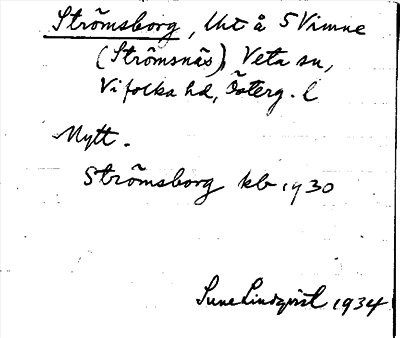 Strömsborg, lht å S Vimne
(Strömsnäs), Veta sn,
Vifolka hd, Österg. l
Nytt.
Strömsborg kb 1930
Sune Lindqvist 1934